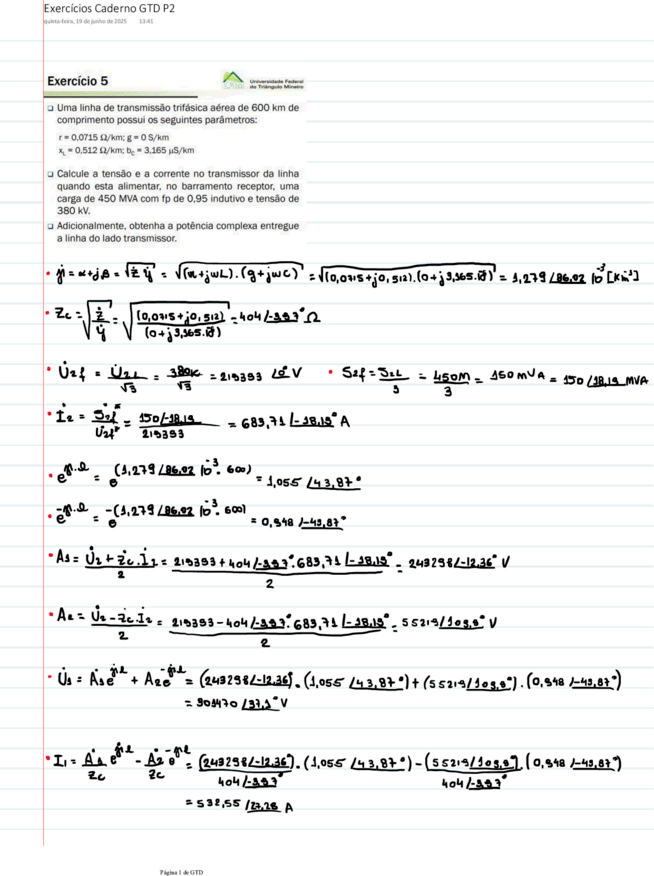 Exercícios Caderno GTD P2
quinta-feira, 19 de junho de 2025 13:41
Exercício 5
Universidade Federal
do Triângulo Mineiro
Uma linha de transmissão trifásica aérea de 600 km de
comprimento possui os seguintes parâmetros:
r = 0,0715 Ω/km; g = 0 S/km
x_L = 0,512 Ω/km; b_C = 3,165 μS/km
Calcule a tensão e a corrente no transmissor da linha
quando esta alimentar, no barramento receptor, uma
carga de 450 MVA com fp de 0,95 indutivo e tensão de
380 kV.
Adicionalmente, obtenha a potência complexa entregue
a linha do lado transmissor.
• γ̇ = α+jβ = √(ż ẏ) = √((r+jwL).(g+jwC)) = √((0,0715+j0,512).(0+j3,165.10⁻⁶)) = 1,279 /86,02 10⁻³ [Km⁻¹]
• Zc = √(ż/ẏ) = √((0,0715+j0,512)/(0+j3,165.10⁻⁶)) = 404 /-3,97° Ω
• U̇2f = U̇2L/√3 = 380K/√3 = 219393 /0° V • S2f = S2L/3 = 450M/3 = 150MVA = 150 /18,19 MVA
• İ2 = Ṡ2f*/U̇2f* = 150/-18,19/219393 = 683,71 /-18,19° A
• e^(γ̇.l) = e^(1,279 /86,02 10⁻³.600) = 1,055 /43,87°
• e^(-γ̇.l) = e^(-(1,279 /86,02 10⁻³.600)) = 0,948 /-43,87°
• A1 = (U̇2 + żc.İ2)/2 = (219393 + 404 /-3,97°.683,71 /-18,19°)/2 = 243298 /-12,36° V
• A2 = (U̇2 - żc.İ2)/2 = (219393 - 404 /-3,97°.683,71 /-18,19°)/2 = 55219 /109,3° V
• U̇1 = Ȧ1e^(γ̇l) + A2e^(-γ̇l) = (243298 /-12,36°).(1,055 /43,87°) + (55219 /109,3°).(0,948 /-43,87°)
= 301470 /37,1° V
• I1 = Ȧ1/Zc e^(γ̇l) - Ȧ2/Zc e^(-γ̇l) = (243298 /-12,36°).(1,055 /43,87°)/404 /-3,97° - (55219 /109,3°).(0,948 /-43,87°)/404 /-3,97°
= 532,55 /27,28 A
Página 1 de GTD